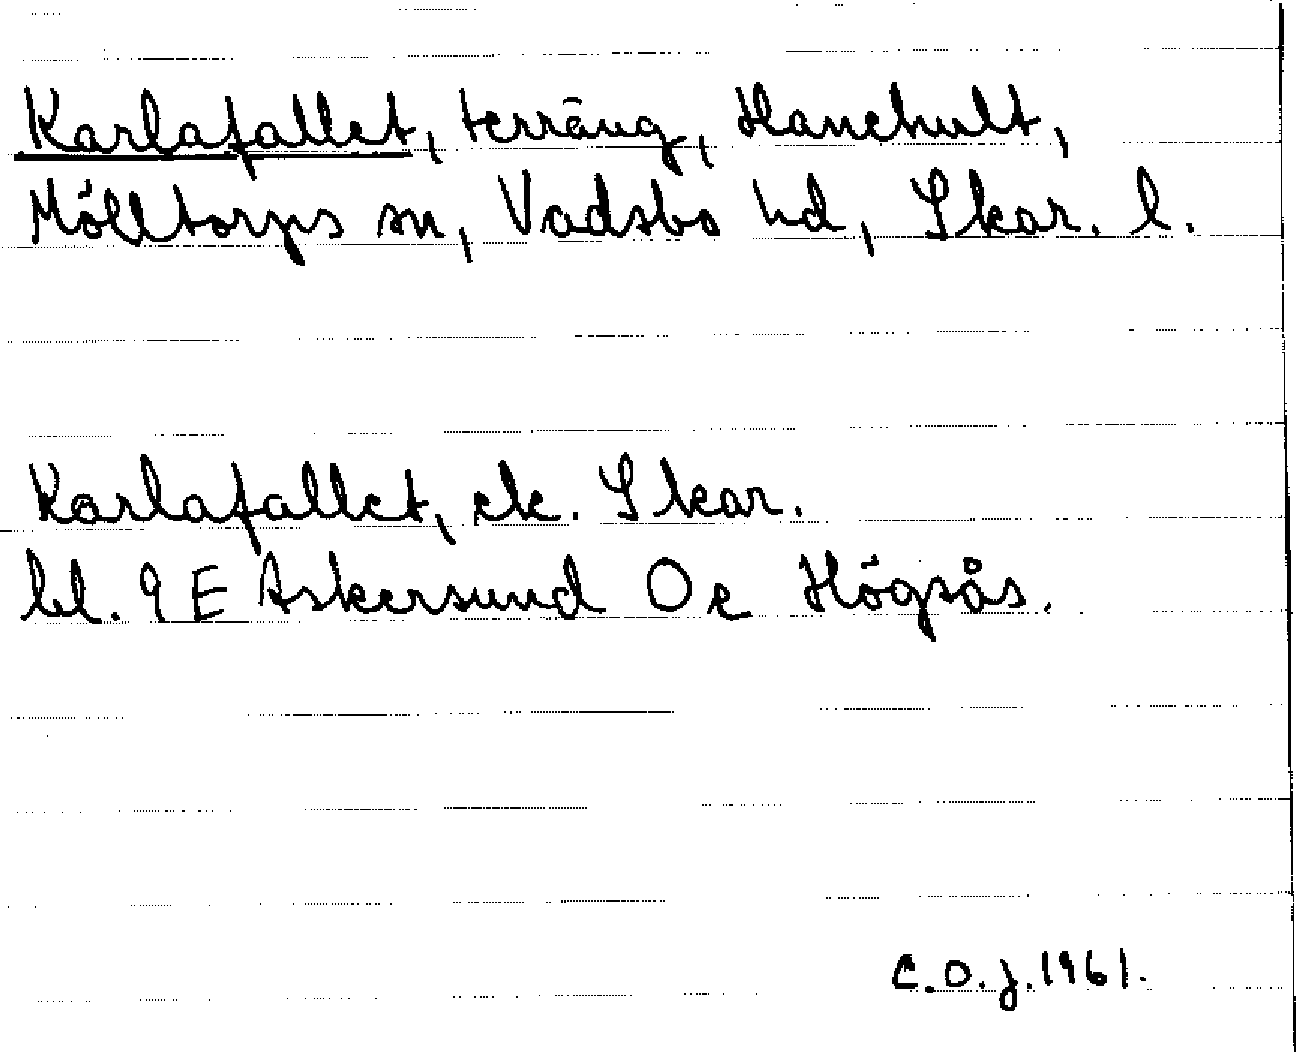 Karlafallet, terräng, Hanehult,
Mölltorps sn, Vadsbo hd, Skar. l.
Karlafallet, ek. Skar.
bl. 9 E Askersund Oe Högsås.
C.O.J. 1961.